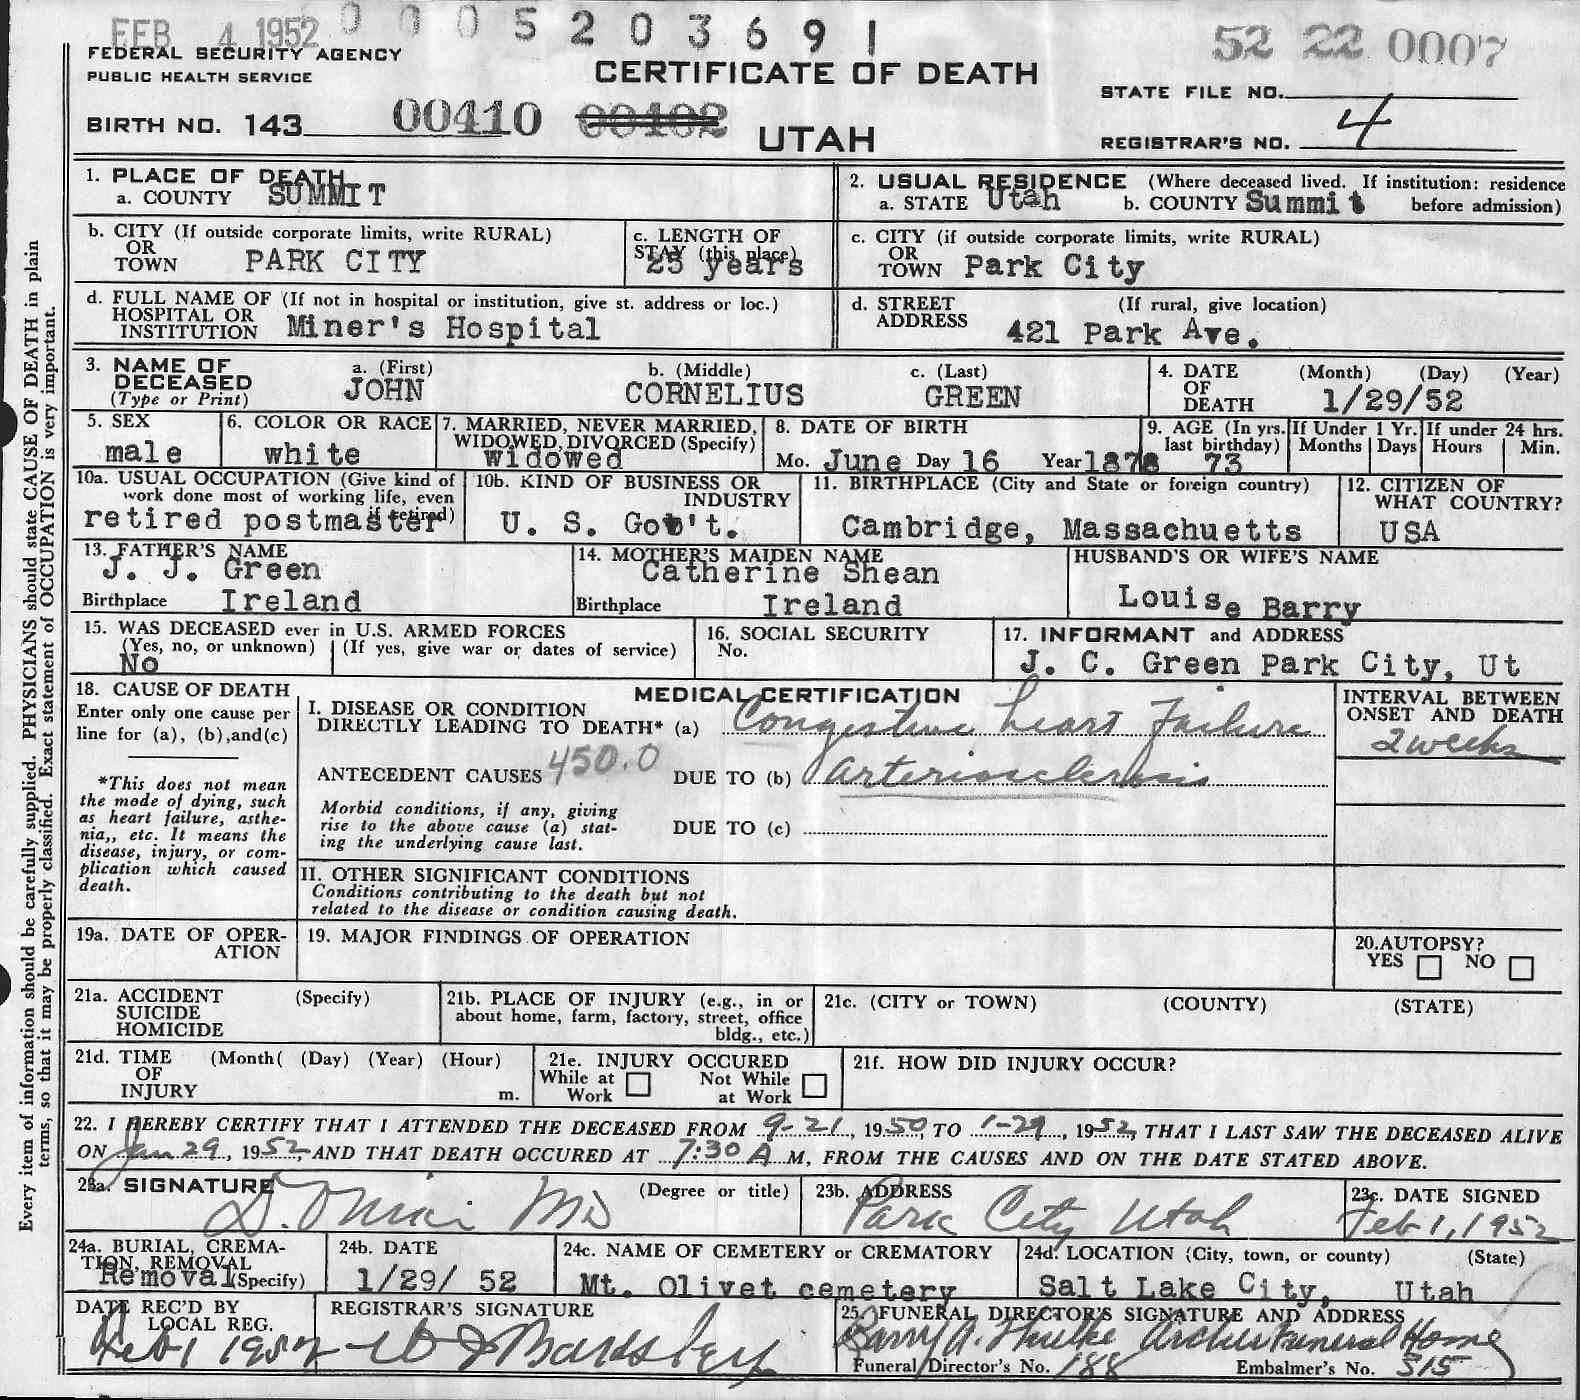 FEB 4 1952 0 0 0 5 2 0 3 6 9 1
52 22 0007
FEDERAL SECURITY AGENCY
PUBLIC HEALTH SERVICE
CERTIFICATE OF DEATH
STATE FILE NO.
BIRTH NO. 143 00410 00402
UTAH
REGISTRAR'S NO. 4
1. PLACE OF DEATH
a. COUNTY SUMMIT
2. USUAL RESIDENCE (Where deceased lived. If institution: residence before admission)
a. STATE Utah b. COUNTY Summit
b. CITY (If outside corporate limits, write RURAL)
OR
TOWN PARK CITY
c. LENGTH OF
STAY (this place)
25 years
c. CITY (if outside corporate limits, write RURAL)
OR
TOWN Park City
d. FULL NAME OF (If not in hospital or institution, give st. address or loc.)
HOSPITAL OR
INSTITUTION Miner's Hospital
d. STREET (If rural, give location)
ADDRESS 421 Park Ave.
3. NAME OF
DECEASED
(Type or Print)
a. (First)
JOHN
b. (Middle)
CORNELIUS
c. (Last)
GREEN
4. DATE (Month) (Day) (Year)
OF
DEATH 1/29/52
5. SEX
male
6. COLOR OR RACE
white
7. MARRIED, NEVER MARRIED,
WIDOWED, DIVORCED (Specify)
widowed
8. DATE OF BIRTH
Mo. June Day 16 Year 1878
9. AGE (In yrs.
last birthday)
73
If Under 1 Yr.
Months Days
If under 24 hrs.
Hours Min.
10a. USUAL OCCUPATION (Give kind of
work done most of working life, even
if retired)
retired postmaster
10b. KIND OF BUSINESS OR
INDUSTRY
U. S. Gov't.
11. BIRTHPLACE (City and State or foreign country)
Cambridge, Massachuetts
12. CITIZEN OF
WHAT COUNTRY?
USA
13. FATHER'S NAME
J. J. Green
Birthplace Ireland
14. MOTHER'S MAIDEN NAME
Catherine Shean
Birthplace Ireland
HUSBAND'S OR WIFE'S NAME
Louise Barry
15. WAS DECEASED ever in U.S. ARMED FORCES
(Yes, no, or unknown) (If yes, give war or dates of service)
No
16. SOCIAL SECURITY
No.
17. INFORMANT and ADDRESS
J. C. Green Park City, Ut
18. CAUSE OF DEATH
Enter only one cause per
line for (a), (b),and(c)
*This does not mean
the mode of dying, such
as heart failure, asthe-
nia,, etc. It means the
disease, injury, or com-
plication which caused
death.
MEDICAL CERTIFICATION
I. DISEASE OR CONDITION
DIRECTLY LEADING TO DEATH* (a) Congestive heart Failure
ANTECEDENT CAUSES 450.0 DUE TO (b) arteriosclerosis
Morbid conditions, if any, giving
rise to the above cause (a) stat-
ing the underlying cause last.
DUE TO (c)
INTERVAL BETWEEN
ONSET AND DEATH
2 weeks
II. OTHER SIGNIFICANT CONDITIONS
Conditions contributing to the death but not
related to the disease or condition causing death.
19a. DATE OF OPER-
ATION
19. MAJOR FINDINGS OF OPERATION
20.AUTOPSY?
YES NO
21a. ACCIDENT (Specify)
SUICIDE
HOMICIDE
21b. PLACE OF INJURY (e.g., in or
about home, farm, factory, street, office
bldg., etc.)
21c. (CITY or TOWN) (COUNTY) (STATE)
21d. TIME (Month( (Day) (Year) (Hour)
OF
INJURY m.
21e. INJURY OCCURED
While at Work Not While at Work
21f. HOW DID INJURY OCCUR?
22. I HEREBY CERTIFY THAT I ATTENDED THE DECEASED FROM 9-21, 1950, TO 1-29, 1952, THAT I LAST SAW THE DECEASED ALIVE
ON Jan 29, 1952, AND THAT DEATH OCCURED AT 7:30 A M, FROM THE CAUSES AND ON THE DATE STATED ABOVE.
23a. SIGNATURE (Degree or title)
MD
23b. ADDRESS
Park City Utah
23c. DATE SIGNED
Feb 1, 1952
24a. BURIAL, CREMA-
TION, REMOVAL
(Specify)
Removal
24b. DATE
1/29/ 52
24c. NAME OF CEMETERY or CREMATORY
Mt. Olivet cemetery
24d. LOCATION (City, town, or county) (State)
Salt Lake City, Utah
DATE REC'D BY
LOCAL REG.
Feb 1 1952
REGISTRAR'S SIGNATURE
25. FUNERAL DIRECTOR'S SIGNATURE AND ADDRESS
Funeral Home
Funeral Director's No. 188 Embalmer's No. 315
Every item of information should be carefully supplied. PHYSICIANS should state CAUSE OF DEATH in plain
terms, so that it may be properly classified. Exact statement of OCCUPATION is very important.